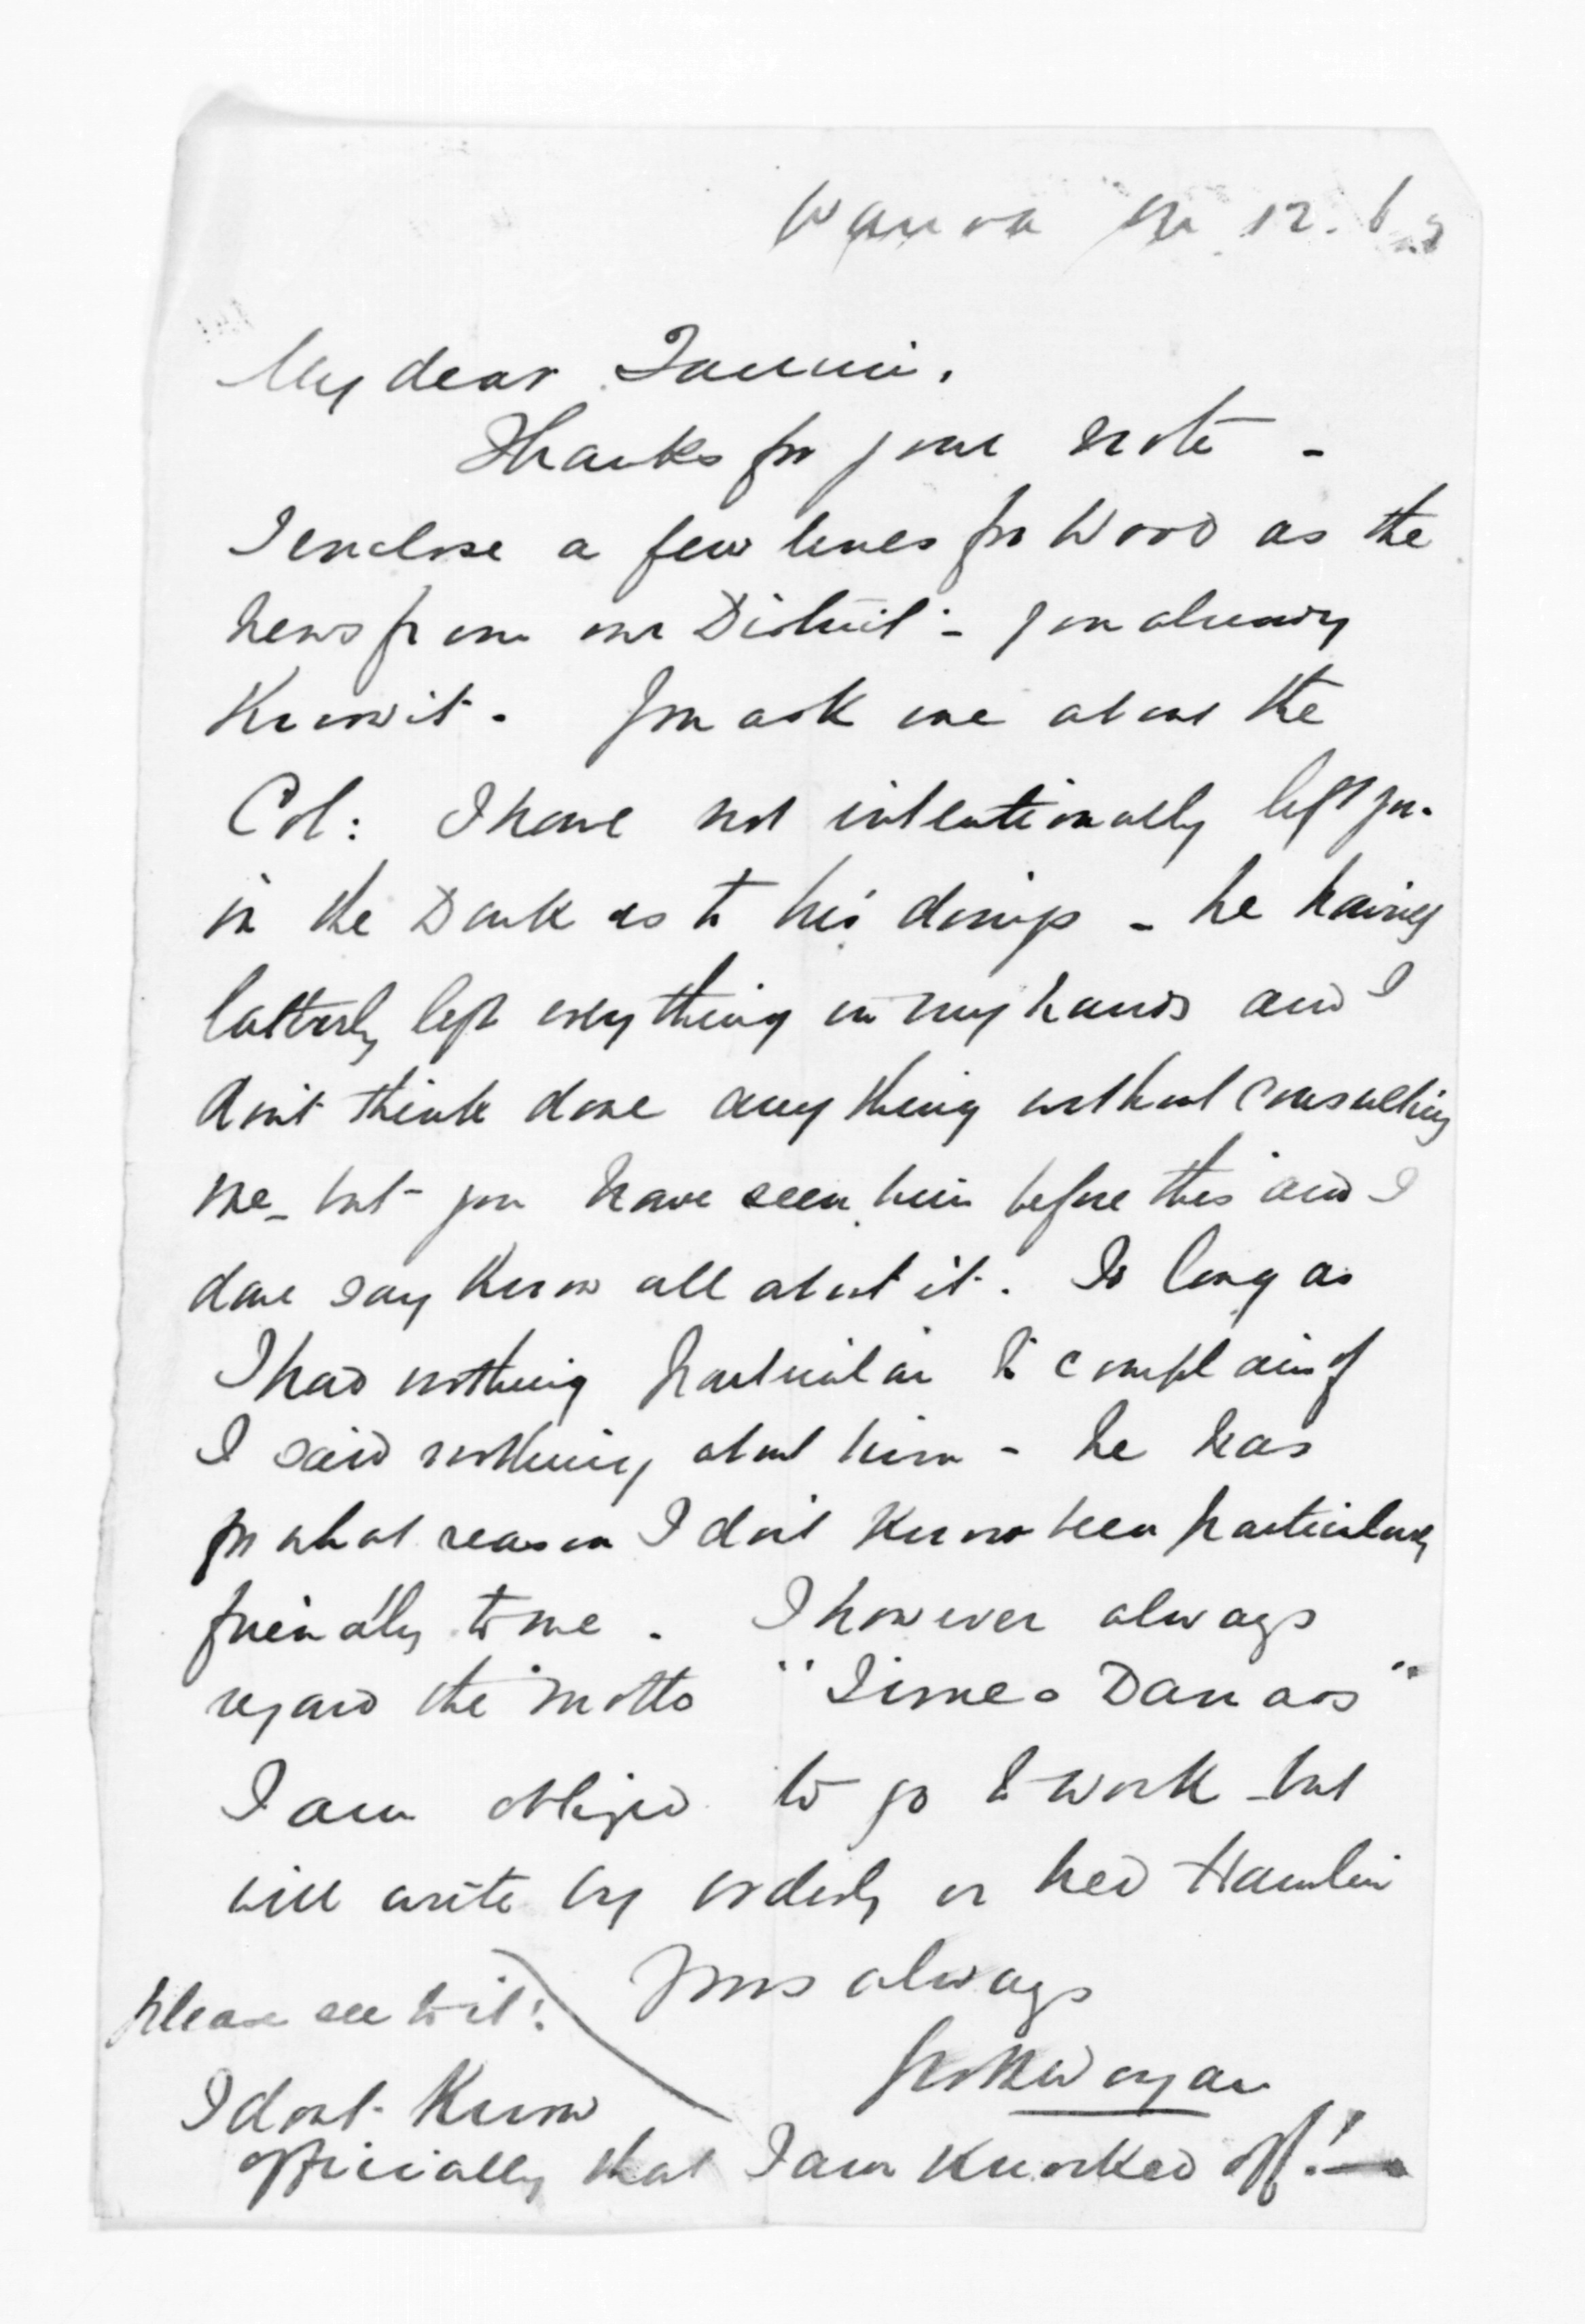 12.
My dear
Thanks for your note -
I enclose a few lines for Wood as the
news from our District - you already
Know it. You ask me about the
Col: I have not intentionally left you
in the Dark as to his doings - he having
latterly left everything in my hands and I
don't think done any thing without consulting
me - but you have seen him before this and I
dare say Know all about it. So long as
I had nothing particular to complain of
I said nothing about him - he has
for what reason I don't Know been particularly
friendly to me. I however always
regard the motto "Timeo Danaos"
I am obliged to go to work - but
will write by orderly or Ned Hamlin
Yours always
please see to it!
I dont Know
officially that I am Knocked off!